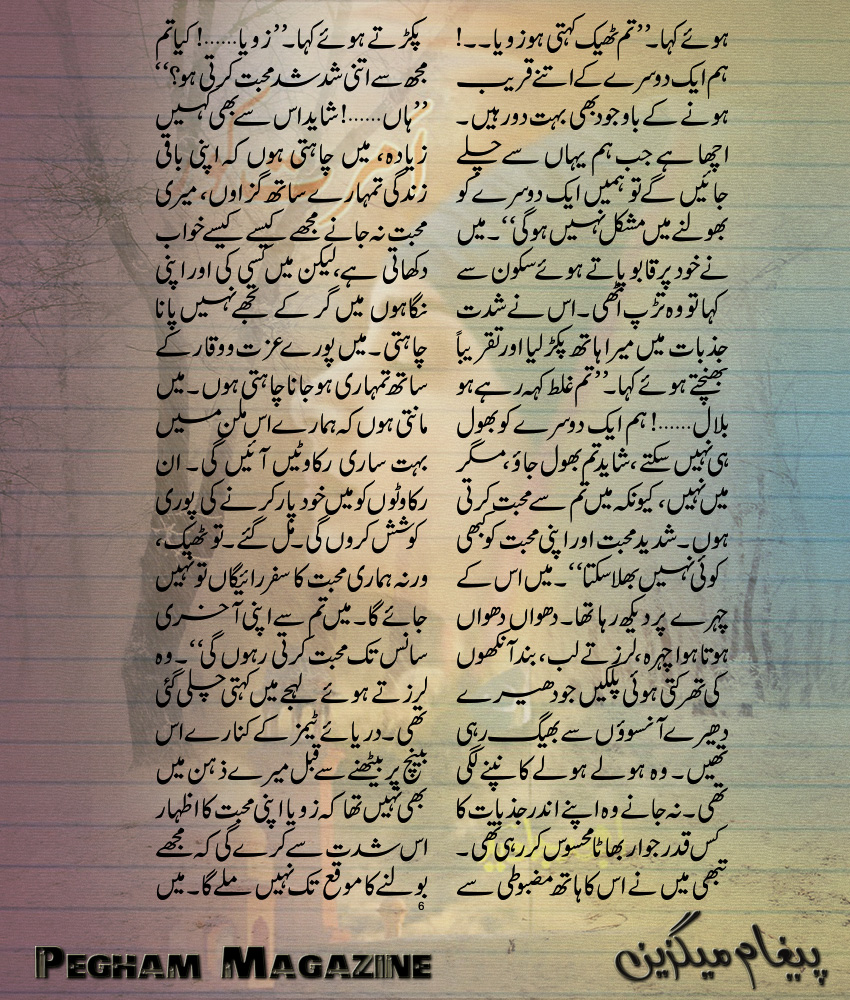 ہوئے کہا۔’’تم ٹھیک کہتی ہو زویا۔۔!
ہم ایک دوسرے کے اتنے قریب
ہونے کے باوجود بھی بہت دور ہیں۔
اچھا ہے جب ہم یہاں سے چلے
جائیں گے تو ہمیں ایک دوسرے کو
بھولنے میں مشکل نہیں ہوگی‘‘۔ میں
نے خود پر قابو پاتے ہوئے سکون سے
کہا تو وہ تڑپ اٹھی۔ اس نے شدت
جذبات میں میرا ہاتھ پکڑ لیا اور تقریباً
بھنچتے ہوئے کہا۔’’تم غلط کہہ رہے ہو
بلال......! ہم ایک دوسرے کو بھول
ہی نہیں سکتے، شاید تم بھول جاؤ، مگر
میں نہیں، کیونکہ میں تم سے محبت کرتی
ہوں۔ شدید محبت اور اپنی محبت کو کبھی
کوئی نہیں بھلا سکتا‘‘۔ میں اس کے
چہرے پر دیکھ رہا تھا۔ دھواں دھواں
ہوتا ہوا چہرہ، لرزتے لب، بند آنکھوں
کی تھرکتی ہوئی پلکیں جو دھیرے
دھیرے آنسوؤں سے بھیگ رہی
تھیں۔ وہ ہولے ہولے کانپنے لگی
تھی۔ نہ جانے وہ اپنے اندر جذبات کا
کس قدر جوار بھاٹا محسوس کر رہی تھی۔
تبھی میں نے اس کا ہاتھ مضبوطی سے
پکڑتے ہوئے کہا۔’’زویا......! کیا تم
مجھ سے اتنی شد شد محبت کرتی ہو؟‘‘
’’ہاں......! شاید اس سے بھی کہیں
زیادہ، میں چاہتی ہوں کہ اپنی باقی
زندگی تمہارے ساتھ گزاوں، میری
محبت نہ جانے مجھے کیسے کیسے خواب
دکھاتی ہے، لیکن میں کسی کی اور اپنی
نگاہوں میں گر کے تجھے نہیں پانا
چاہتی۔ میں پورے عزت و وقار کے
ساتھ تمہاری ہو جانا چاہتی ہوں۔ میں
مانتی ہوں کہ ہمارے اس ملن میں
بہت ساری رکاوٹیں آئیں گی۔ ان
رکاوٹوں کو میں خود پار کرنے کی پوری
کوشش کروں گی۔ مل گئے۔ تو ٹھیک،
ورنہ ہماری محبت کا سفر رائیگاں تو نہیں
جائے گا۔ میں تم سے اپنی آخری
سانس تک محبت کرتی رہوں گی‘‘۔ وہ
لرزتے ہوئے لہجے میں کہتی چلی گئی
تھی۔ دریائے ٹیمز کے کنارے اس
بینچ پر بیٹھنے سے قبل میرے ذہن میں
بھی نہیں تھا کہ زویا اپنی محبت کا اظہار
اس شدت سے کرے گی کہ مجھے
بولنے کا موقع تک نہیں ملے گا۔ میں
6
Pegham Magazine
پیغام میگزین